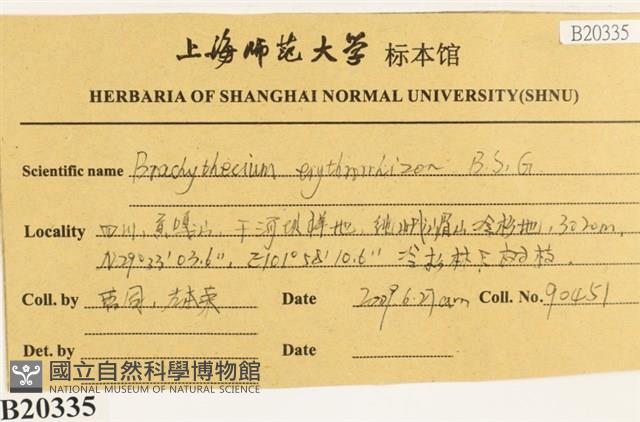 B20335
上海师范大学 标本馆
HERBARIA OF SHANGHAI NORMAL UNIVERSITY(SHNU)
Scientific name Brachythecium erythrorrhizon B.S.G.
Locality 四川, 贡嘎山, 干河坝样地, 冷杉地, 3020m,
N29°33'03.6", E101°58'10.6" 冷杉林
Coll. by 曹同 Date 2009.6.27 Coll. No. 90451
Det. by Date
國立自然科學博物館
NATIONAL MUSEUM OF NATURAL SCIENCE
B20335